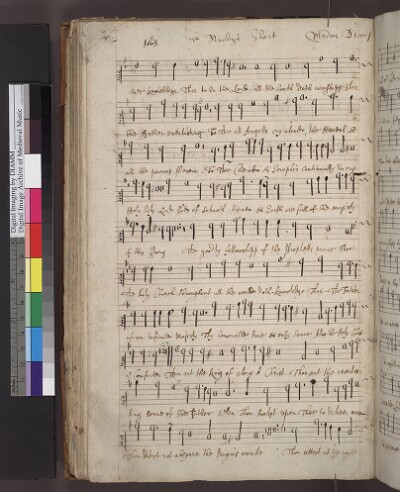 1685 mr Mundys Short Medius Decani
wee knowledge Thee to be the Lord all the Earth doth worshipp thee
the Father everlasting To Thee all Angells cry aloude, the Heavens &
all the powers therein To Thee Cherubin & Seraphin continually do cry
Holy holy Lord God of Sabaoth heaven & Earth are full of the majesty
of thy Glory The goodly fellowshipp of the Prophets praise Thee
The holy Church throughout all the world doth knowledge Thee The Father
of an infinite majesty Thy honourable true & only sonne Also the holy Ghost
Comforter Thou art the King of glory O Christ Thou art the everla
sting sonne of the Father When Thou tookst upon Thee to deliver man
Thou didst not abhorre the virgins wombe Thou sittest at the right
Digital Imaging by DIAMM
Digital Image Archive of Medieval Music